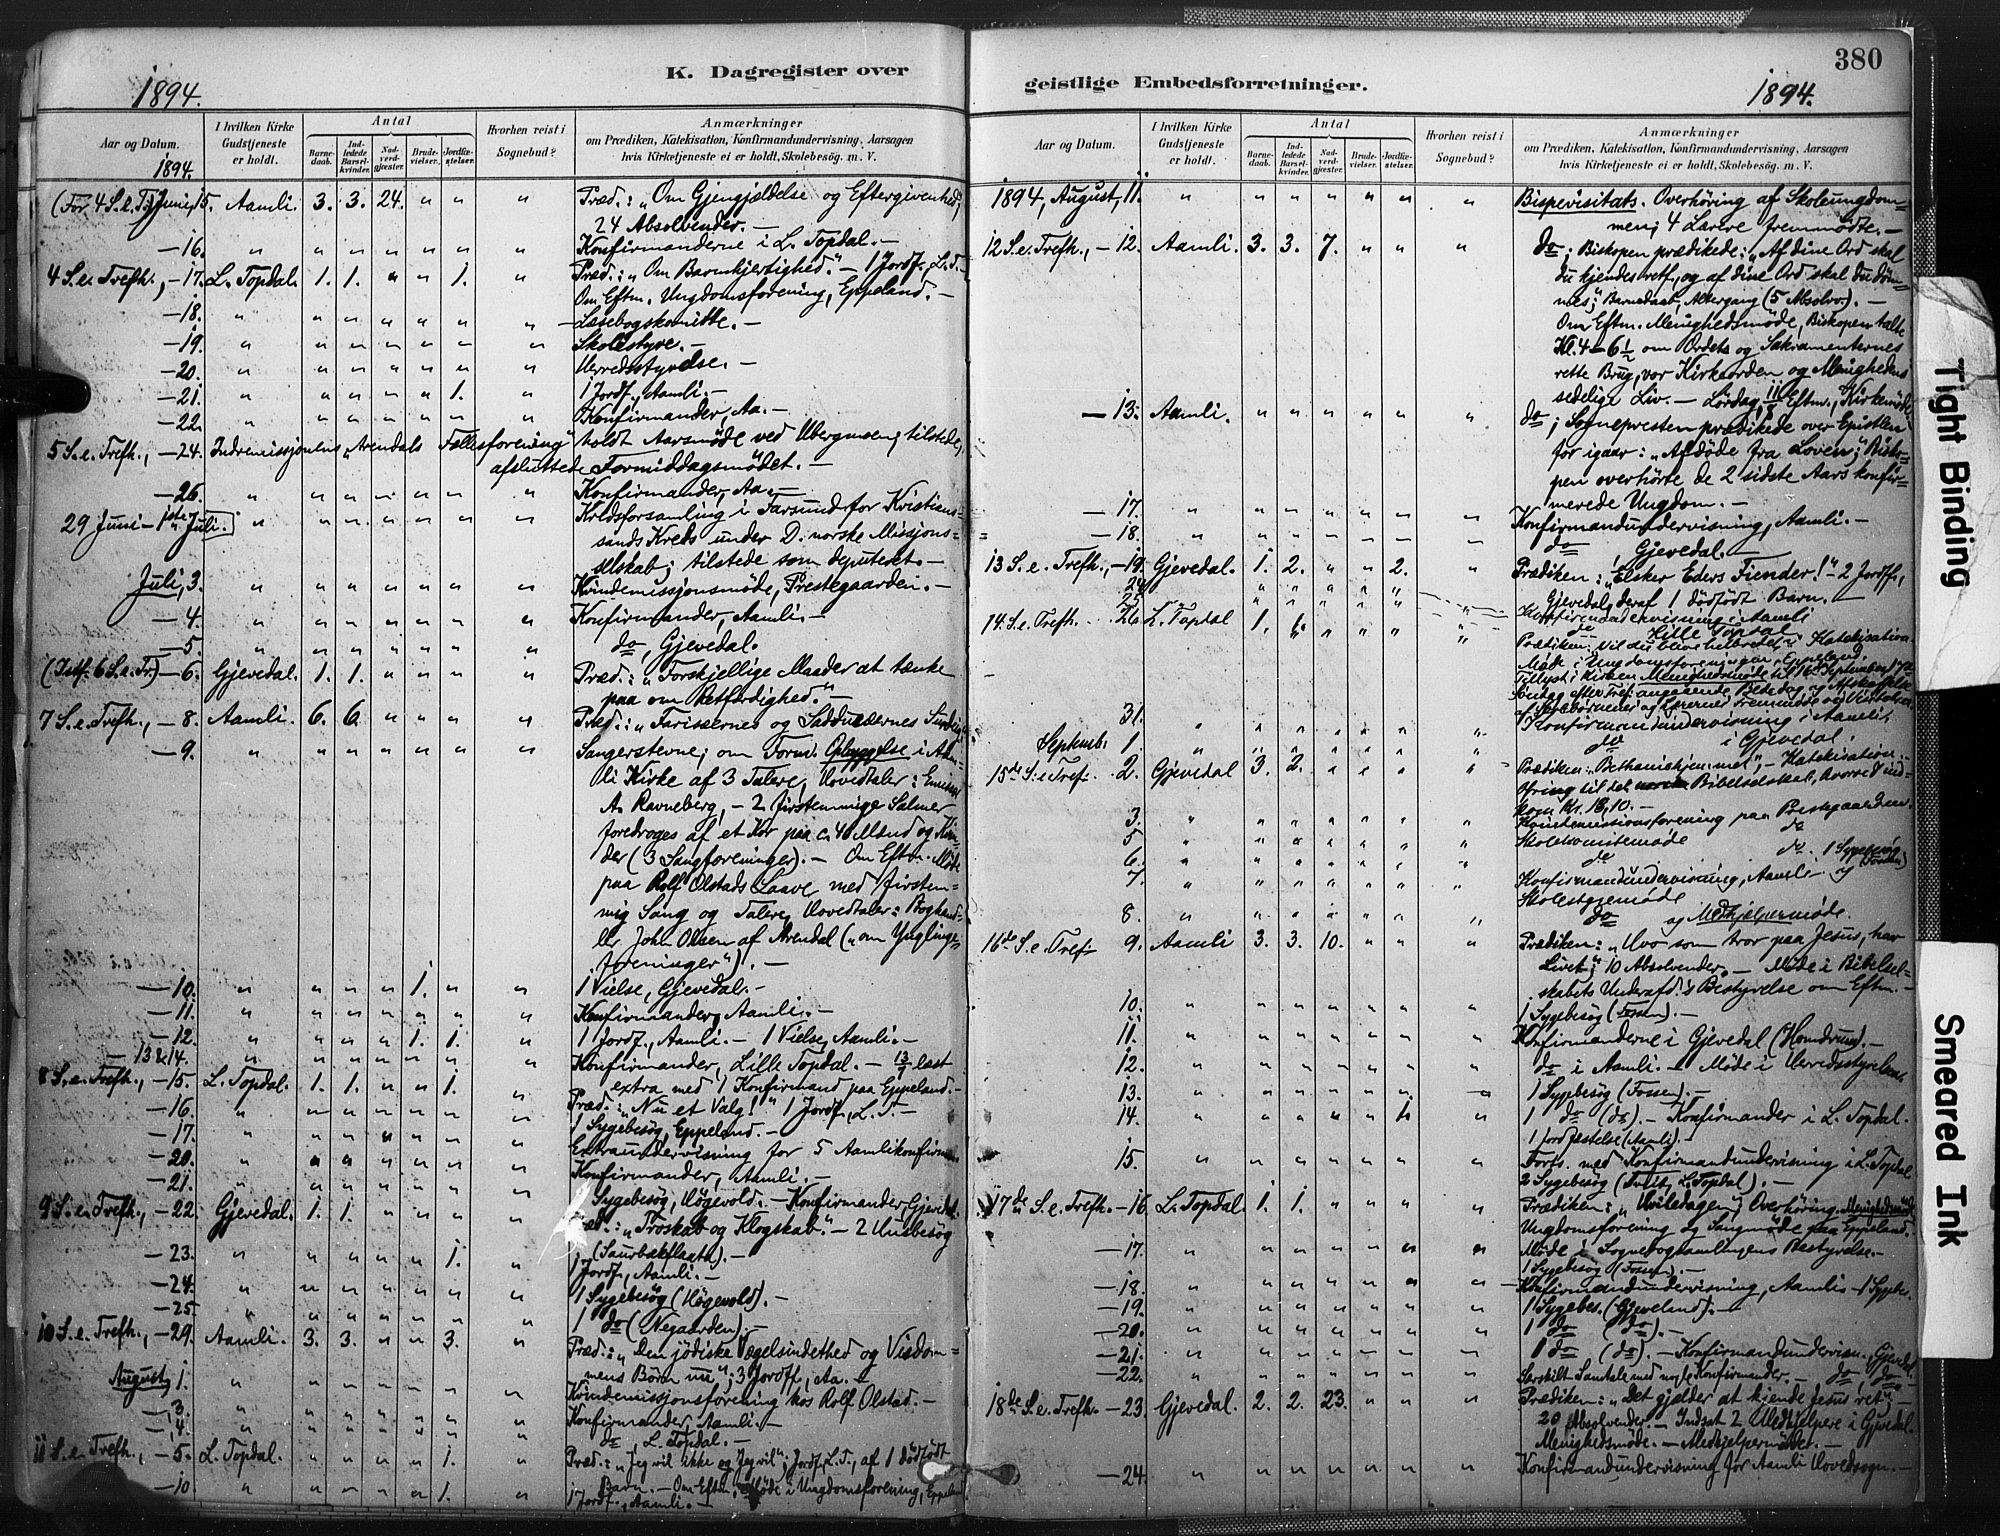 K. Dagregister over
geistlige Embedsforretninger.
380
1894.
1894.
Aar og Datum.
1894.
I hvilken Kirke Gudstjeneste er holdt.
Antal
Barnedaab.
Indledede Barselkvinder.
Nadverdgjæster.
Brudevielser.
Jordfæstelser.
Hvorhen reist i Sognebud?
Anmærkninger
om Prædiken, Katekisation, Konfirmandundervisning, Aarsagen
hvis Kirketjeneste ei er holdt, Skolebesøg. m. V.
(For 4 S. e. Tr.) Juni, 15. Aamli. 3. 3. 24. " " " Præd.: "Om Gjengjældelse og Eftergivenhed",
24 Absolvender. —
— 16. " " " " " " " Konfirmanderne i L. Topdal. —
4 S. e. Trefh., — 17. L. Topdal. 1. 1. " " 1. " Præd.: "Om Barmhjertighed." — 1 Jordf., L. T. —
Om Eftm. Ungdomsforening, Eppeland. —
— 18. " " " " " " " Læsebogskomitte. —
— 19. " " " " " " " Skolestyre. —
— 20. " " " " " " " Herredsstyrelse. —
— 21. " " " " " 1. " 1 Jordf., Aamli. —
— 22. " " " " " " " Konfirmander, Aa. —
5 S. e. Trefh., — 24. Indremissjonens "Arendals Fællesforening" holdt Aarsmøde ved Ubergmoen; tilstede,
afsluttede Formiddagsmødet. —
— 26. " " " " " " " Konfirmander, Aa. —
29 Juni — 1ste Juli. " " " " " " " Kredsforsamling i Farsund for Kristians-
sands Kreds under D. norske Missjons-
selskab; tilstede som deputeret. —
Juli, 3. " " " " " " " Kvindemissjonsmøde, Prestegaarden. —
— 4. " " " " " " " Konfirmander, Aamli. —
— 5. " " " " " " " do, Gjevedal.
(Istf. 6 S. e. Tr.) — 6. Gjevedal. 1. 1. " " " " Præd.: "Forskjellige Maader at tænke
paa om Retfærdighed." —
7 S. e. Trefh., — 8. Aamli. 6. 6. " " " " Præd.: "Farisæernes og Sadducæernes Surdeig."
— 9. " " " " " " " Sangerstevne; om Form. Opbyggelse i Aam-
li Kirke af 3 Talere, Hovedtaler: Emissær
A. Ravneberg, — 2 firstemmige Salmer
foredroges af et Kor paa c. 40 Mænd og Kvin-
der (3 Sangforeninger). — Om Eftm. Møde
paa Rolf Olstads Laave med firstem-
mig Sang og Talere, Hovedtaler: Boghand-
ler John Olsen af Arendal ("om Ynglinge-
foreninger"). —
— 10. " " " " 1. " " 1 Vielse, Gjevedal. —
— 11. " " " " " " " Konfirmander, Aamli. —
— 12. " " " " 1. 1. " 1 Jordf., Aamli. — 1 Vielse, Aamli. —
— 13 & 14. " " " " " " " Konfirmander, Lille Topdal. — 13/7 læst
extra med 1 Konfirmand paa Eppeland. —
8 S. e. Trefh., — 15. L. Topdal. 1. 1. " " 1. " Præd.: "Nu et Valg!" 1 Jordf., L. T. —
— 16. " " " " " " " 1 Sygebesøg, Eppeland. —
— 17. " " " " " " " Extraundervisning for 5 Aamlikonfirm.
— 20. " " " " " " " Konfirmander, Aamli. —
— 21. " " " " " " " Sygebesøg, Høgevold. — Konfirmander, Gjevedal.
9 S. e. Trefh., — 22. Gjevedal. 1. 1. " " " " Præd.: "Troskab og Klogskab." — 2 Husbesøg
(Saurbækflaate). —
— 23. " " " " " 1. " 1 Jordf., Aamli. —
— 24. " " " " " " " 1 Sygebesøg (Høgevold). —
— 25. " " " " " " " 1 do (Negaarden). —
10 S. e. Trefh., — 29. Aamli. 3. 3. " " 3. " Præd.: "Den jødiske Vægelsindethed og Visdom-
mens Børn nu"; 3 Jordff., Aa. —
August, 1. " " " " " " " Kvindemissjonsforening hos Rolf Olstad. —
— 3. " " " " " " " Konfirmander, Aamli. —
— 4. " " " " " " " do, L. Topdal. —
11 S. e. Trefh., — 5. L. Topdal. " " " " 1. " Præd.: "Jeg vil ikke og Jeg vil"; Jordf., L. T., af 1 dødfødt
Barn. — Om Eftm. Møde i Ungdomsforening, Eppeland.
— 10. " " " " " 1. " 1 Jordf., Aamli. —
Aar og Datum.
I hvilken Kirke Gudstjeneste er holdt.
Antal
Barnedaab.
Indledede Barselkvinder.
Nadverdgjæster.
Brudevielser.
Jordfæstelser.
Hvorhen reist i Sognebud?
Anmærkninger
om Prædiken, Katekisation, Konfirmandundervisning, Aarsagen
hvis Kirketjeneste ei er holdt, Skolebesøg. m. V.
1894, August, 11. " " " " " " " Bispevisitats. Overhøring af Skoleungdom-
men; 4 Lærere fremmødte. —
12 S. e. Trefh., — 12. Aamli. 3. 3. 7. " " " do; Biskopen prædikede: "Af dine Ord skal
du kjendes retf., og af dine Ord skal du døm-
mes"; Barnedaab, Altergang (5 Absolv.). —
Om Eftm. Menighedsmøde, Biskopen talte
Kl. 4 — 6 1/2 om Ordets og Sakramenternes
rette Brug, vor Kirkeorden og Menighedens
sedelige Liv. — Lørdag 11/8 Eftm., Kirkemøde.
— 13. Aamli. " " " " " " do; Sognepresten prædikede over Epistlen
for igaar: "Afdøde fra Loven"; Bisko-
pen overhørte de 2 sidste Aars konfir-
merede Ungdom. —
— 17. " " " " " " " Konfirmandundervisning, Aamli. —
— 18. " " " " " " " do Gjevedal. —
13 S. e. Trefh., — 19. Gjevedal. 1. 2. " " 2. " Prædiken: "Elsker Eders Fiender!" — 2 Jordff.,
Gjevedal, deraf 1 dødfødt Barn. —
24. " " " " " " " Konfirmandundervisning i Aamli
25. " " " " " " " do Lille Topdal.
14. S. e. Trefh. 26. L. Topdal 1. 1. " " " " Prædiken: Vil du blive helbredet. Katekisation.
Møde i Ungdomsforeningen, Eppeland.
Tillyst i Kirken Menighedsmøde til 16 September 17de
Søndag efter Tref. angaaende Bededag og
31. " " " " " " " Konfirmandundervisning i Aamli.
Septemb. 1. " " " " " " " do i Gjevedal.
15de S. e. Tref. 2. Gjevedal 3. 2. " " " " Prædiken: "Bethaniehjemmet". — Katekisation. —
Ofring til det norske Bibelselskab, hvorved ind-
kom Kr. 18,10. —
3. " " " " " " " Kvindemissionsforening paa Prestegaarden.
5 " " " " " " " Skolekomitemøde do
6. " " " " " " " do do. 1 Sygebesøg
7. " " " " " " " Konfirmandundervisning, Aamli og
Skolestyremøde
8. " " " " " " " do og Medhjelpermøde.
16de S. e. Tref. 9. Aamli 3. 3. 10. " " " Prædiken: "Hvo som tror paa Jesus, har
Livet"; 10 Absolvender. — Møde i Bibelsel-
skabets Underafd.'s Bestyrelse om Eftm. —
10. " " " " " " " 1 Sygebesøg (Fossen). —
11. " " " " " " " Konfirmanderne i Gjevedal (Homdrum). —
12. " " " " " " " do i Aamli. — Møde i Herredsstyrelsen.
13. " " " " " " " 1 Sygebesøg (Fossen). —
14. " " " " " 1. " 1 do (do). — Konfirmander i L. Topdal.
1 Jordfæstelse (Aamli). —
15. " " " " " " " Forts. med Konfirmandundervisning i L. Topdal
2 Sygebesøg (Tveit, L. Topdal). —
17de S. e. Trefh. — 16 L. Topdal. 1. 1. " " " " Prædiken: "Hviledagen"; Overhøring. Menighedsmøde.
Ungdomsforening og Sangmøde paa Eppeland.
— 17. " " " " " " " Møde i Sognebogsamlingens Bestyrelse. —
1 Sygebesøg (Fossen). —
— 18. " " " " " " " Konfirmandundervisning, Aamli. — 1 Sygebe.
— 19. " " " " " " " 1 Sygebes. (Gjeveland). —
— 20. " " " " " " " 1 do (do). —
— 21. " " " " " " " 1 do (do). — Konfirmandundervisn., Gjevedal.
— 22. " " " " " " " Særskilt Samtale med nogle Konfirmander. — do, do —
18de S. e. Trefh. — 23. Gjevedal. 2. 2. 23. " " " Prædiken: "Det gjælder at kjende Jesus ret";
20 Absolvender. — Indsat 2 Medhjelpere i Gjevedal.
Menighedsmøde. — Medhjelpermødet. —
— 24. " " " " " " " Konfirmandundervisning for Aamli Hovedsogn. —
Tight Binding
Smeared Ink